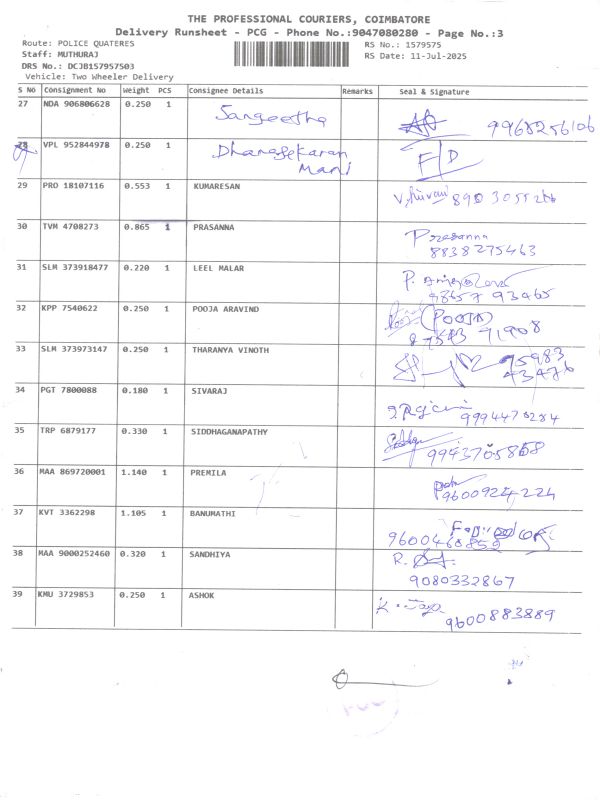 THE PROFESSIONAL COURIERS, COIMBATORE
Delivery Runsheet - PCG - Phone No.:9047080280 - Page No.:3
Route: POLICE QUATERES
RS No.: 1579575
Staff: MUTHURAJ
RS Date: 11-Jul-2025
DRS No.: DCJB157957503
Vehicle: Two Wheeler Delivery
S No Consignment No Weight PCS Consignee Details Remarks Seal & Signature
27 NDA 906806628 0.250 1 Sangeetha 9968256106
28 VPL 952844978 0.250 1 Dhanasekaran F/D
Mani
29 PRO 18107116 0.553 1 KUMARESAN
30 TVM 4708273 0.865 1 PRASANNA Prasanna
8838275463
31 SLM 373918477 0.220 1 LEEL MALAR
98657 93465
32 KPP 7540622 0.250 1 POOJA ARAVIND (POOJA)
87543 71908
33 SLM 373973147 0.250 1 THARANYA VINOTH 75983
43476
34 PGT 7800088 0.180 1 SIVARAJ
9994470284
35 TRP 6879177 0.330 1 SIDDHAGANAPATHY
9943705868
36 MAA 869720001 1.140 1 PREMILA
9600924224
37 KVT 3362298 1.105 1 BANUMATHI
9600468859
38 MAA 9000252460 0.320 1 SANDHIYA R.
9080332867
39 KMU 3729853 0.250 1 ASHOK
9600883889